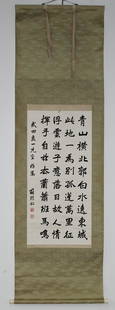 青山橫北郭白水遶東城
此地一為別孤蓬萬里征
浮雲遊子意落日故人情
揮手自茲去蕭蕭班馬鳴
武田一先生